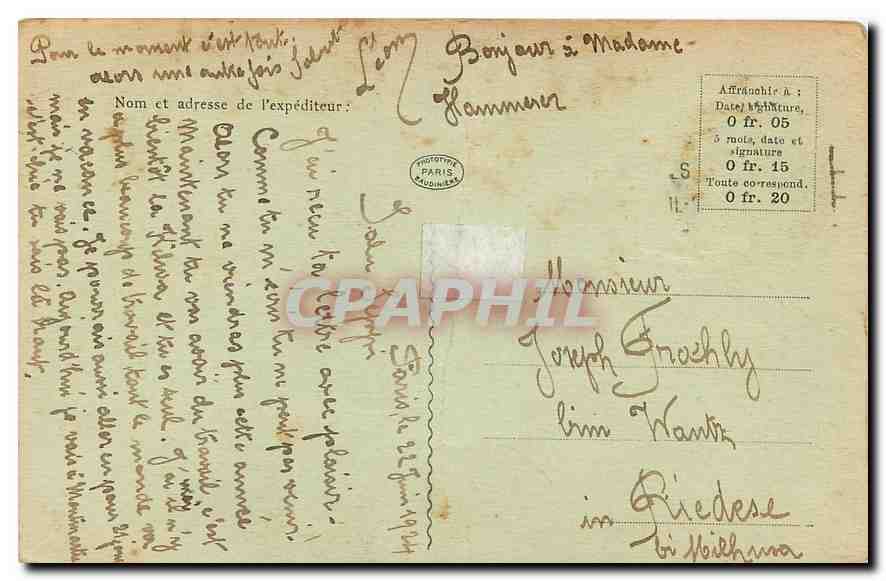 Pour le moment c'est tout.
alors une autre fois Salut
Léon
Bonjour à Madame
Hammerer
Nom et adresse de l'expéditeur :
Affranchir à :
Date, signature,
0 fr. 05
5 mots, date et
signature
0 fr. 15
Toute correspond.
0 fr. 20
PHOTOTYPIE
PARIS
BAUDINIÈRE
CPAPHIL
Paris, le 22 Juin 1924
Salu
J'ai reçu ta lettre avec plaisir.
Comme tu m'écris tu ne peut pas venir.
Alors tu ne viendras plus cette année
Maintenant tu vas avoir du travail c'est
bientôt la et tu es seul. J'ai
mais il n'y
a plus beaucoup de travail tout le monde va
en vacances. Je pourrais aussi aller en pour 21 jours
mais je ne vais pas. Aujourd'hui je vais à Montmartre
c'est que tu sais là haut.
Monsieur
Joseph Froehly
bim Wantz
in Riedese
bi Milhusa